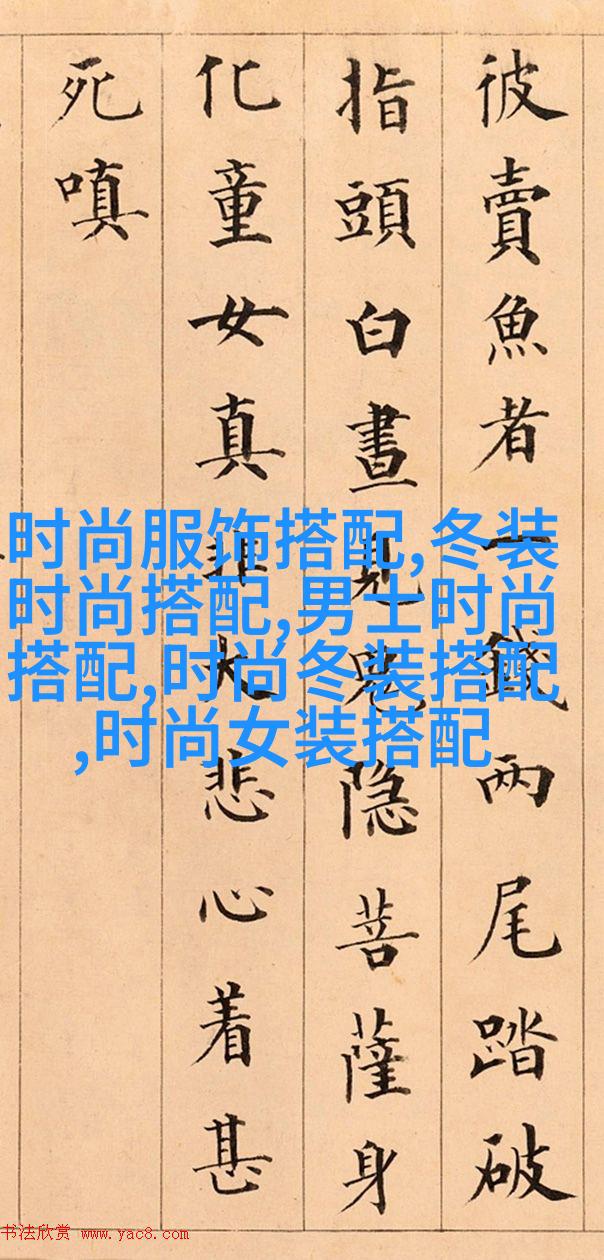 彼賣魚者一錢两尾踏破
指頭白晝見鬼隐菩薩身
化童女真非大悲心着甚
死嗔
时尚服饰搭配,冬装
时尚搭配,男士时尚
搭配,时尚冬装搭配
,时尚女装搭配
书法欣赏 www.yac8.com